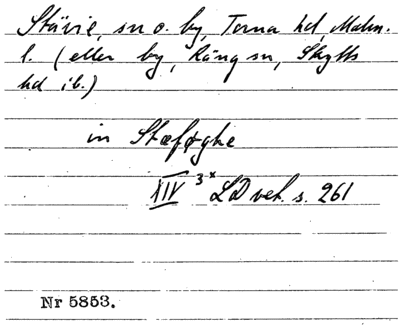 Stävie, sn o. by, Torna hd, Malm.
l. (eller by, Räng sn, Skytts
hd ib.)
in Stæføghe
XIV 3* LD vet. s. 261
Nr 5853.